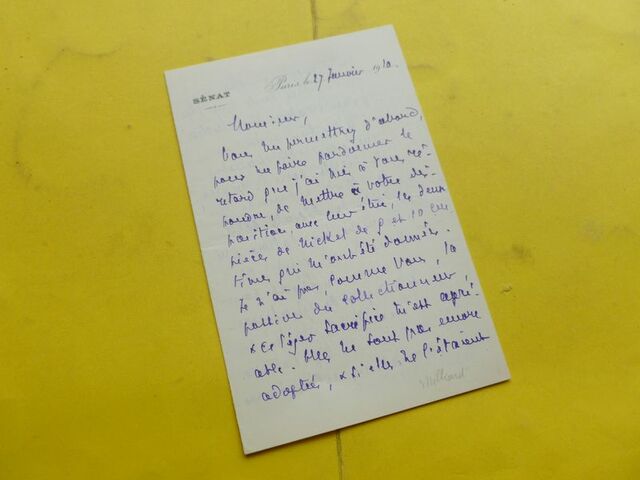 SÉNAT
Paris le 27 Janvier 1910
Monsieur,
Vous me permettrez d'abord,
pour me faire pardonner le
retard que j'ai mis à vous ré-
pondre, de mettre à votre dis-
position, avec leur étui, les deux
pièces de nickel de 5 et 10 cen-
times qui m'ont été données.
Je n'ai pas, comme vous, la
passion du collectionneur,
& ce léger sacrifice m'est agré-
able. Elles ne sont pas encore
adoptées, & si elles ne l'étaient
Milliard